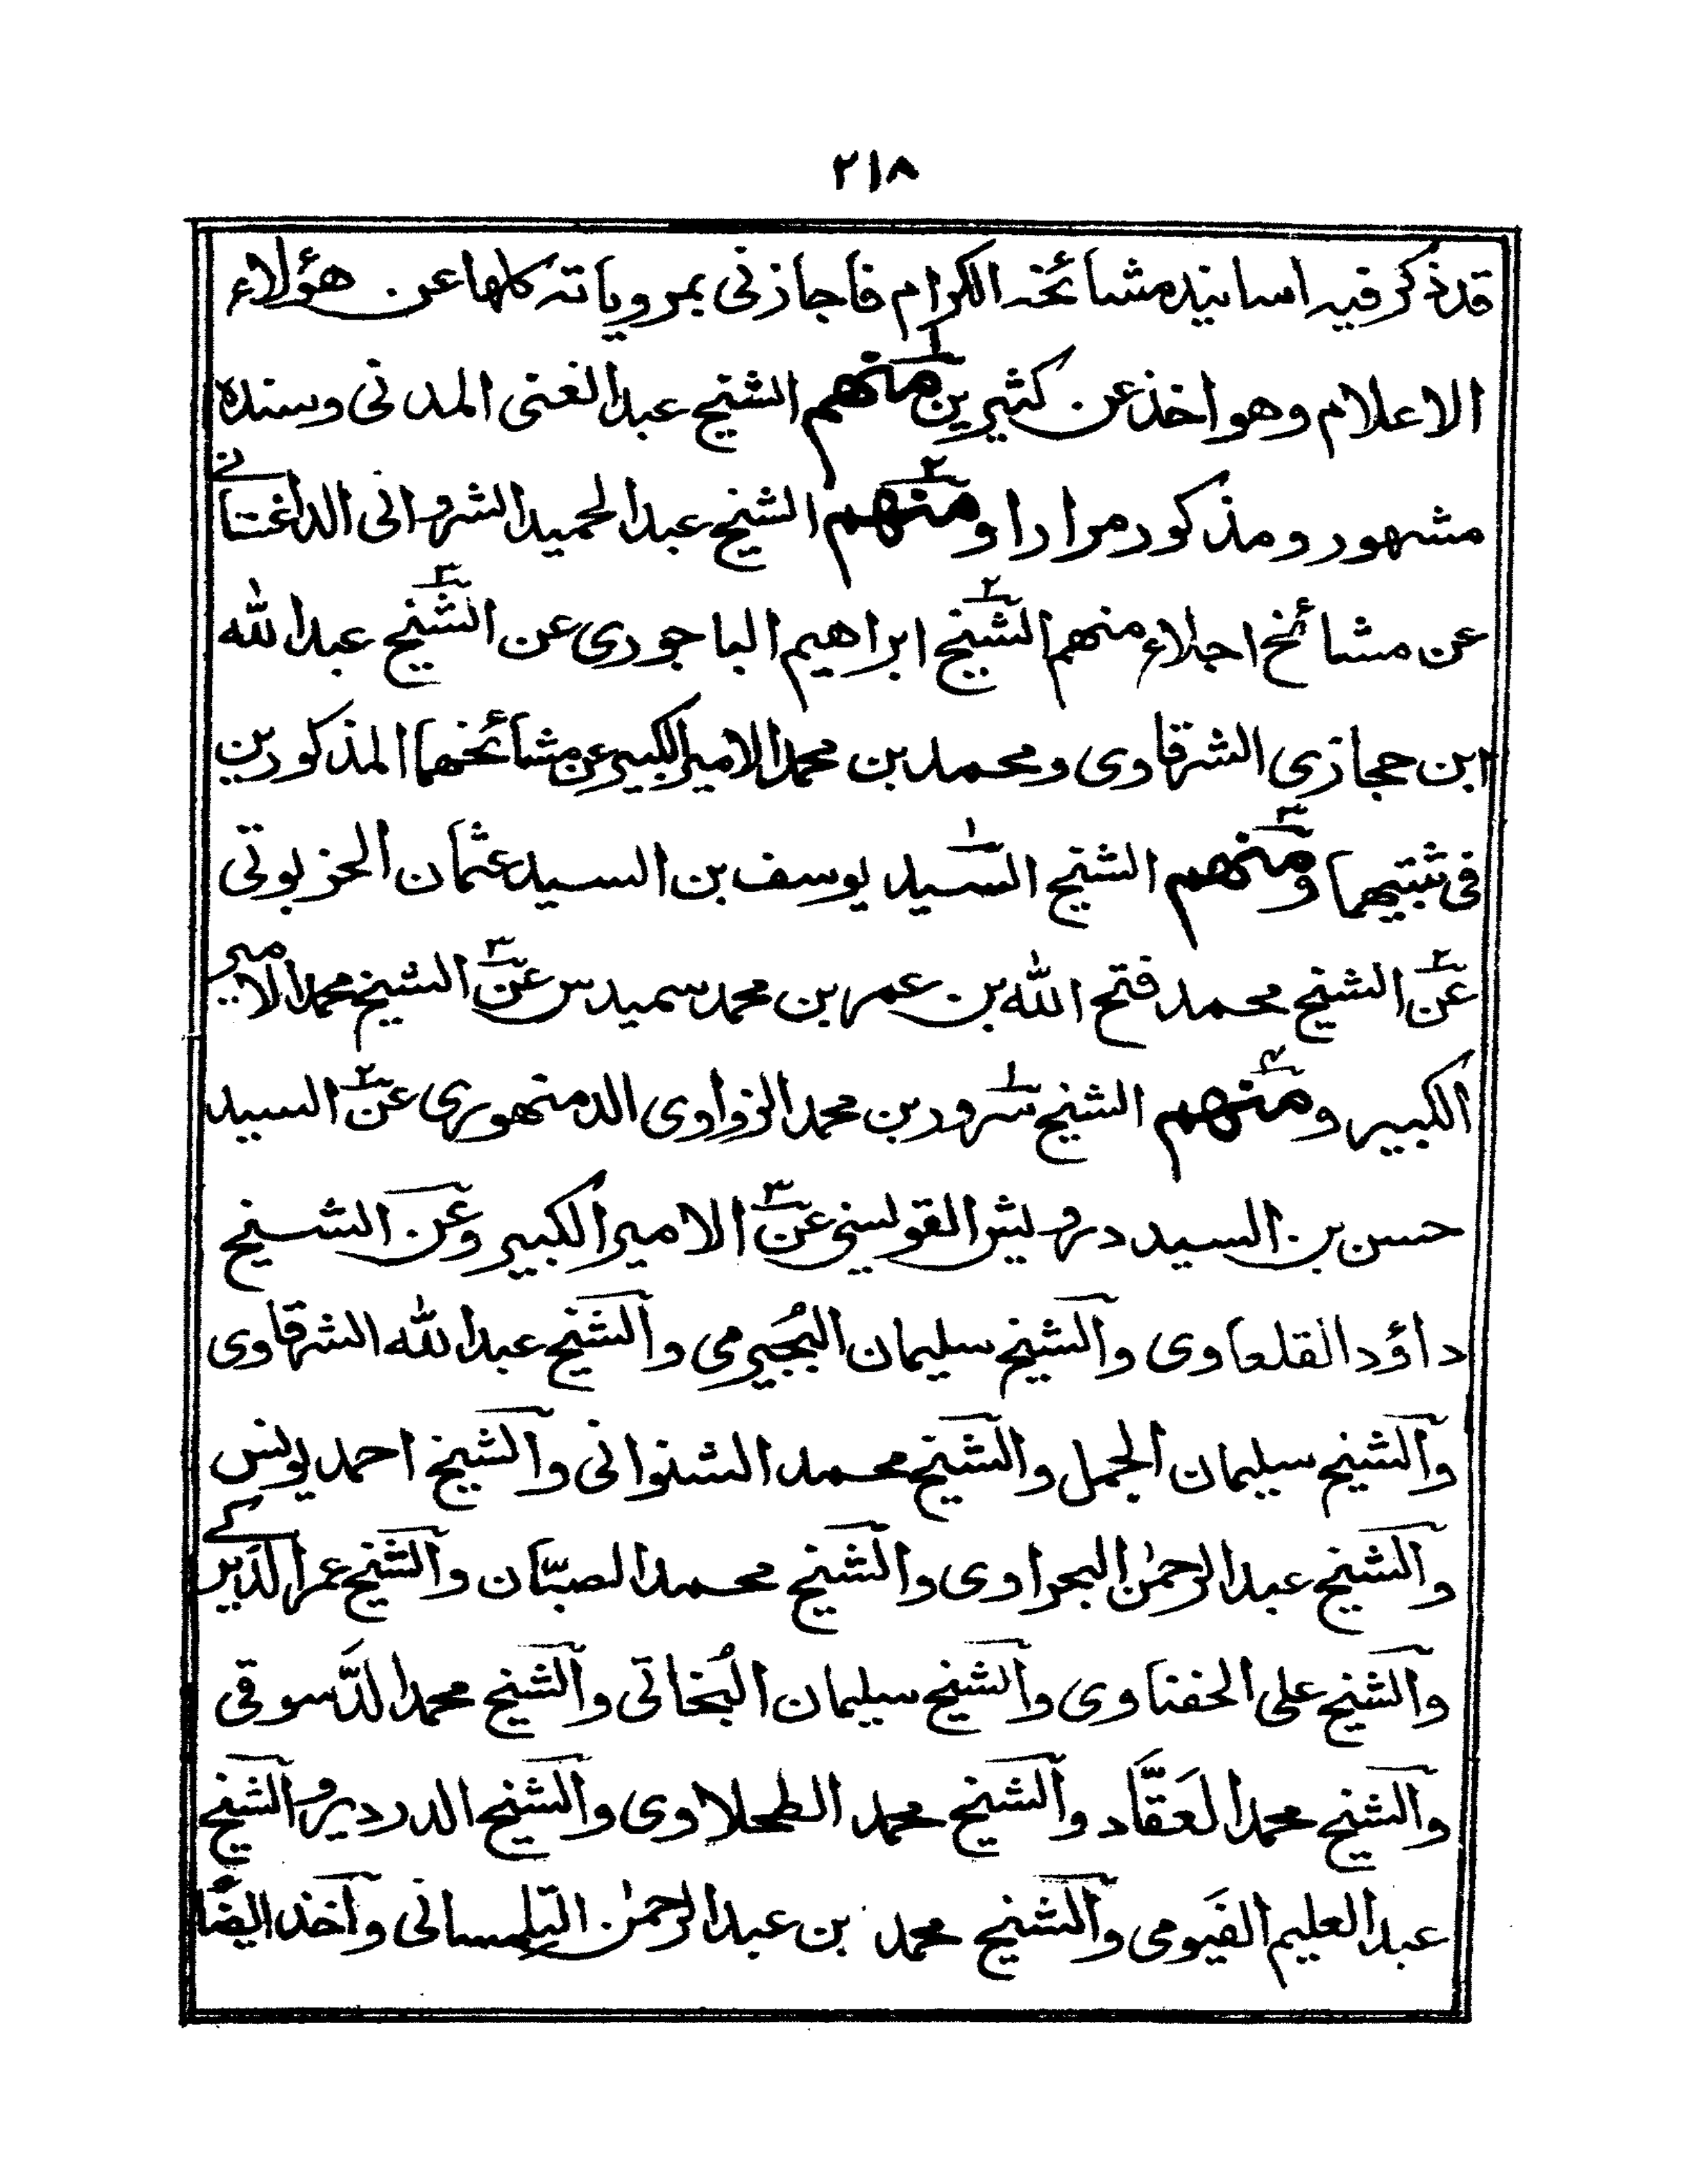 ٢١٨
قد ذكر فيه اسانيد مشائخه الكرام فاجازنى بمروياته كلها عن هؤلاء
الاعلام وهو اخذ عن كثيرين ١ منهم الشيخ عبد الغنى المدنى وسنده
مشهور ومذكور مرارا و٢ منهم الشيخ عبد الحميد الشروانى الداغستانے
عن مشائخ اجلاء منهم ٢ الشيخ ابراهيم الباجورى عن ٣ الشيخ عبد الله
ابن حجازى الشرقاوى ومحمد بن محمد الامير الكبير عن مشائخهما المذكورين
فى ثبتيهما و٣ منهم الشيخ ١ السيد يوسف بن السيد عثمان الخربوتى
٢ عن الشيخ محمد فتح الله بن عمر بن محمد سميدس ٣ عن الشيخ محمد الامير
الكبير و٤ منهم الشيخ ١ سرور بن محمد الزواوى الدمنهورى ٢ عن السيد
حسن بن السيد درويش القويسنى ٣ عن الامير الكبير وعن الشيخ
داؤد القلعاوى والشيخ سليمان البُجيرمى والشيخ عبد الله الشرقاوى
والشيخ سليمان الجمل والشيخ محمد الشنوانى والشيخ احمد يونس
والشيخ عبد الرحمٰن البحراوى والشيخ محمد الصبّان والشيخ عمر الدَيربے
والشيخ على الحفناوى والشيخ سليمان البُخاتى والشيخ محمد الدَّسوقى
والشيخ محمد العَقَّاد والشيخ محمد الطحلاوى والشيخ الدردير والشيخ
عبد العليم الفَيومى والشيخ محمد بن عبد الرحمٰن التلمسانى وآخذ ايضًا